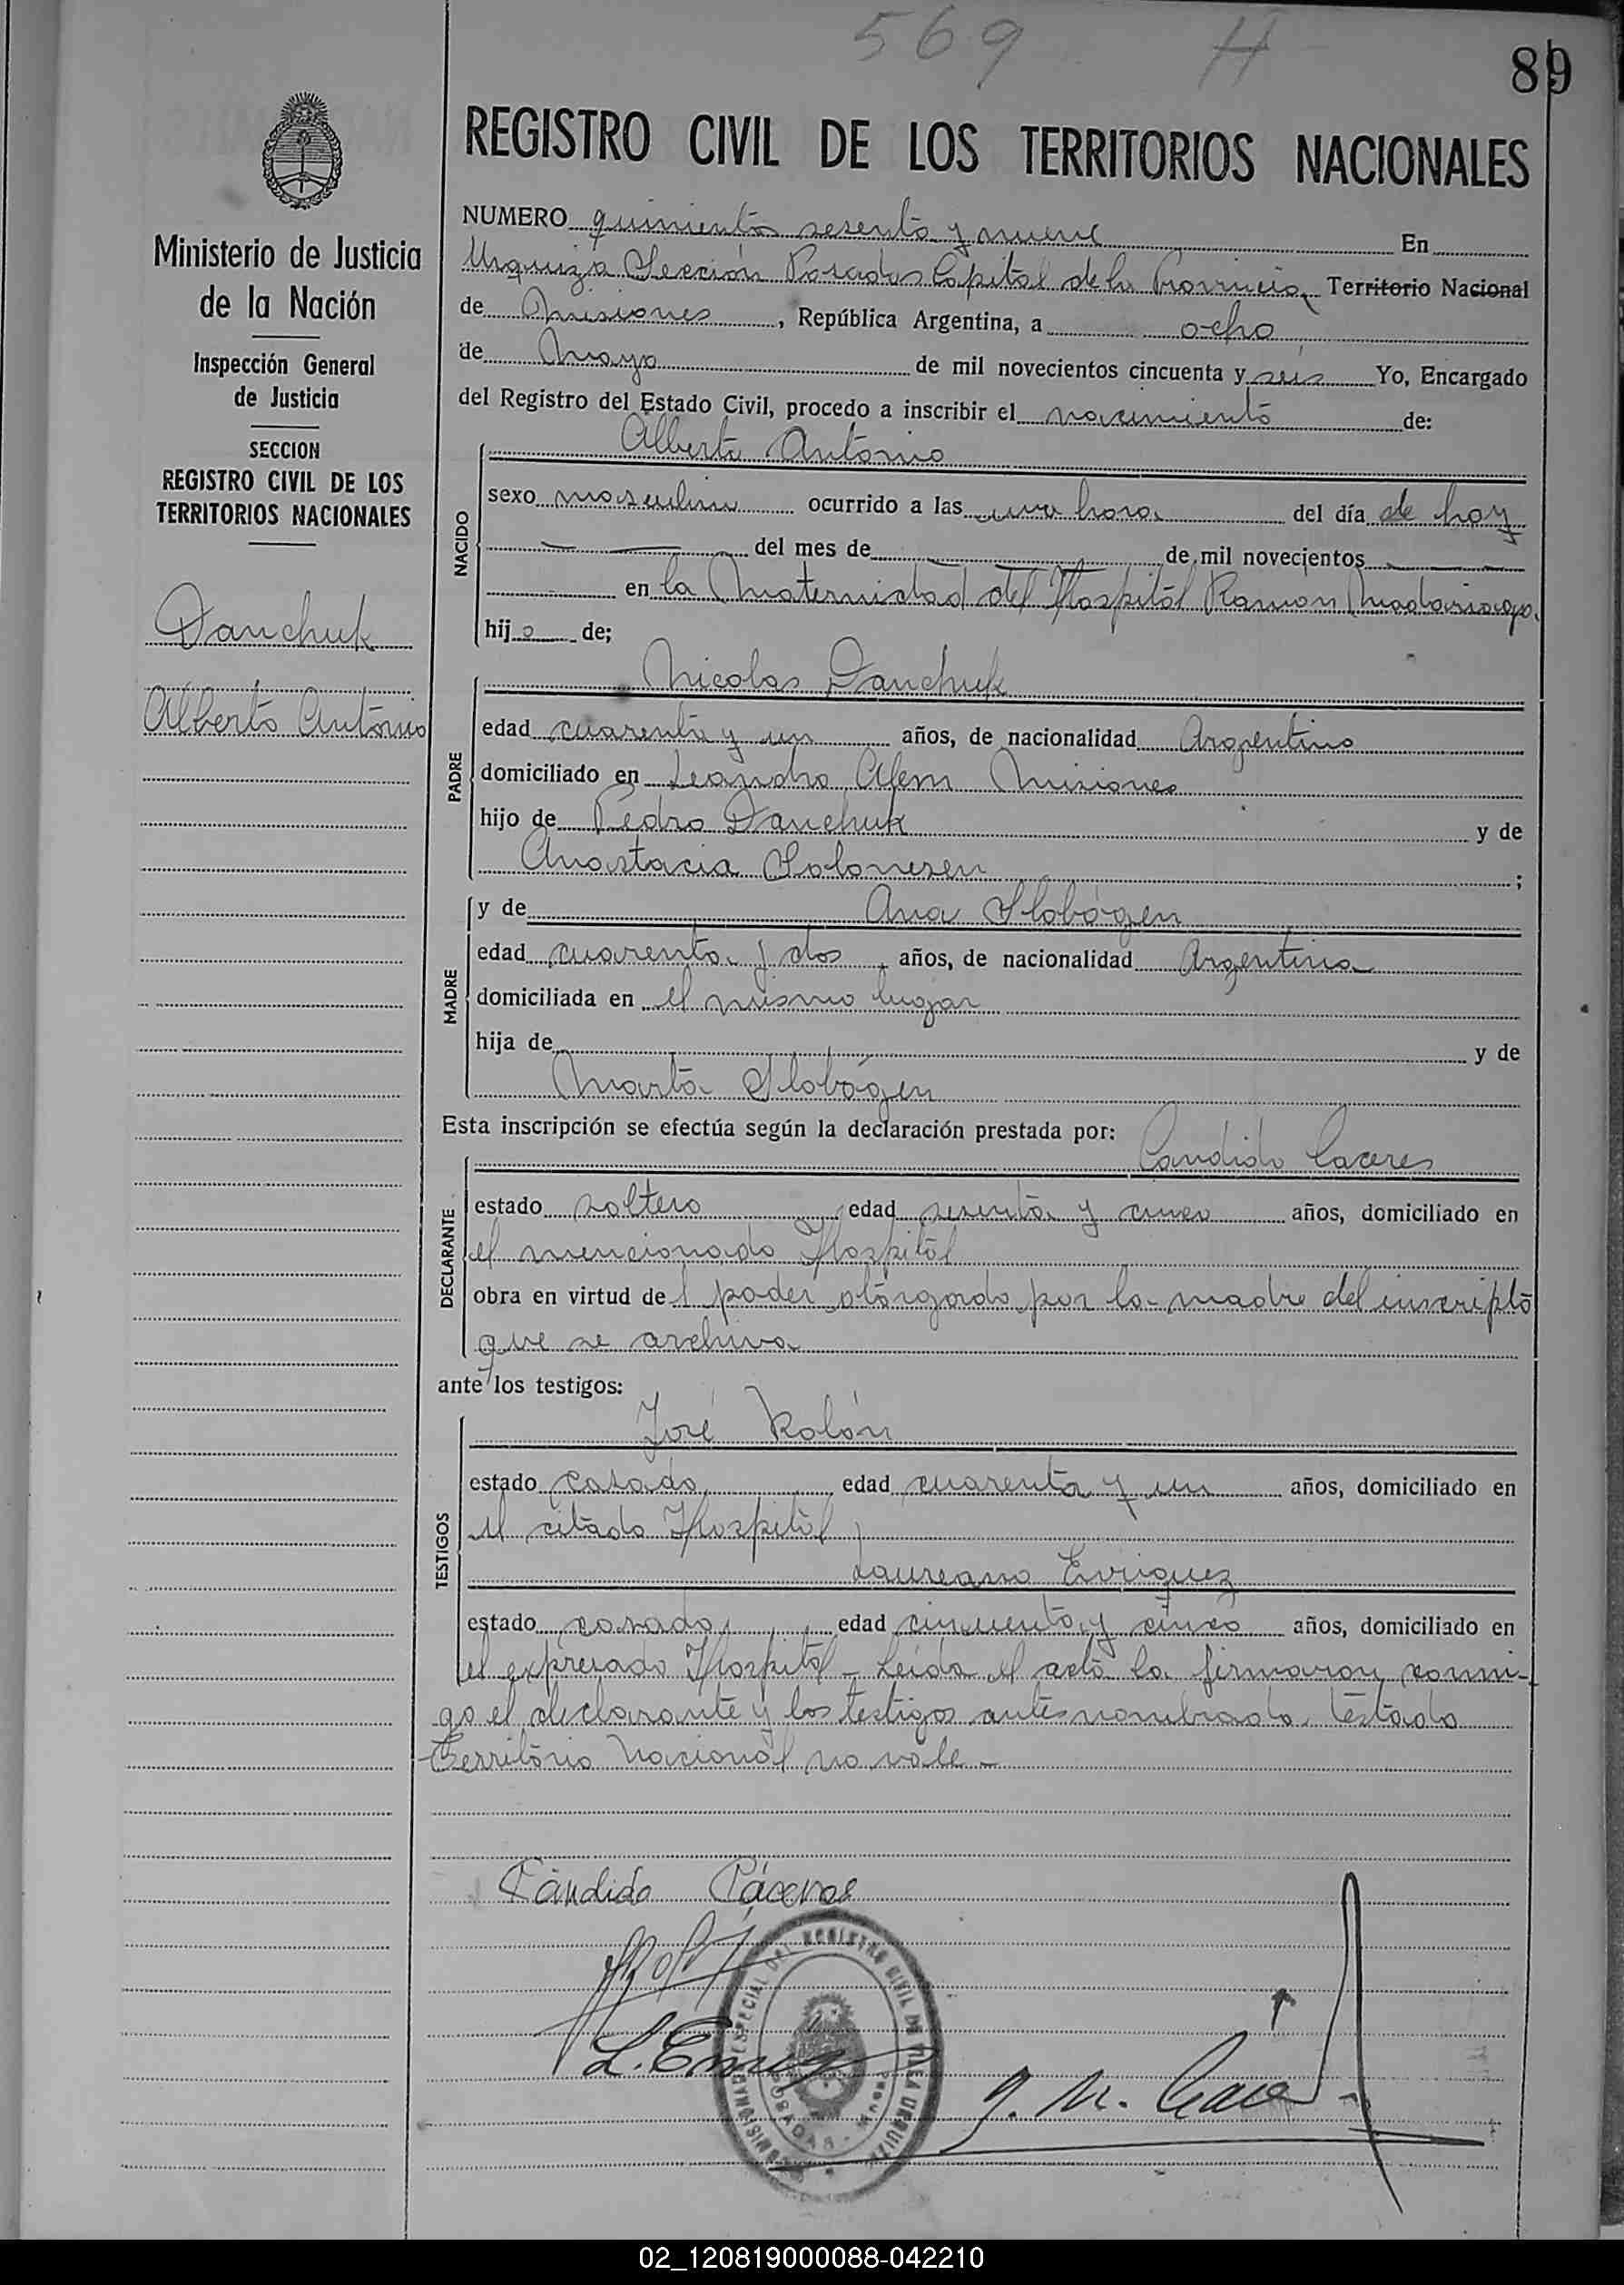 569 H
89
REGISTRO CIVIL DE LOS TERRITORIOS NACIONALES
Ministerio de Justicia
de la Nación
Inspección General
de Justicia
SECCION
REGISTRO CIVIL DE LOS
TERRITORIOS NACIONALES
Danchuk
Alberto Antonio
NUMERO quinientos sesenta y nueve En
Urquiza Sección Posadas Capital de la Provincia Territorio Nacional
de Misiones, República Argentina, a ocho
de Mayo de mil novecientos cincuenta y seis Yo, Encargado
del Registro del Estado Civil, procedo a inscribir el nacimiento de:
Alberto Antonio
NACIDO
sexo masculino ocurrido a las una hora del día de hoy
del mes de de mil novecientos
en la Maternidad del Hospital Ramon Madariaga
hijo de;
Nicolas Danchuk
PADRE
edad cuarenta y un años, de nacionalidad Argentino
domiciliado en Leandro Alem Misiones
hijo de Pedro Danchuk y de
Anastacia ;
y de Ana Slobógen
MADRE
edad cuarenta y dos años, de nacionalidad Argentina
domiciliada en el mismo lugar
hija de y de
Marta Slobógen
Esta inscripción se efectúa según la declaración prestada por:
Candido Caceres
DECLARANTE
estado soltero edad sesenta y cinco años, domiciliado en
el mencionado Hospital
obra en virtud del poder otorgado por la madre del inscripto
que se archiva
ante los testigos:
José Rolón
TESTIGOS
estado casado edad cuarenta y un años, domiciliado en
el citado Hospital
Laureano Enriquez
estado casado edad cincuenta y cinco años, domiciliado en
el expresado Hospital - Leida el acta la firmaron conmi-
go el declarante y los testigos antes nombrado. Testado
Territorio Nacional no vale -
Cándido Cáceres
L. Enriq
02_120819000088-042210